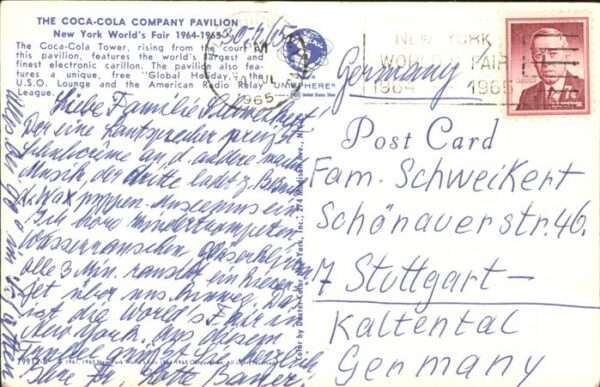 THE COCA-COLA COMPANY PAVILION
New York World's Fair 1964-1965
The Coca-Cola Tower, rising from the court of
this pavilion, features the world's largest and
finest electronic carillon. The pavilion also fea-
tures a unique, free "Global Holiday," the
U.S.O. Lounge and the American Radio Relay
League.
UNISPHERE
1965
NEW YORK
WORLD'S FAIR
1964 1965
7c
Germany
Post Card
Liebe Familie Schweikert
Der eine Lautsprecher preist
an, d. andere macht
Musik, der dritte ladet z. Besuch
d. Wax puppen museums ein
Ich höre Kindertrompeten
Wasserrauschen,
alle 3 Min. rauscht ein
jet über uns hinweg. Das
ist die World's Fair in
New York. Aus diesem
Trubel grüßt Sie herzlich
Ihre Lotte Bauer.
Fam. Schweikert
Schönauerstr. 46.
7 Stuttgart-
Kaltental
Germany